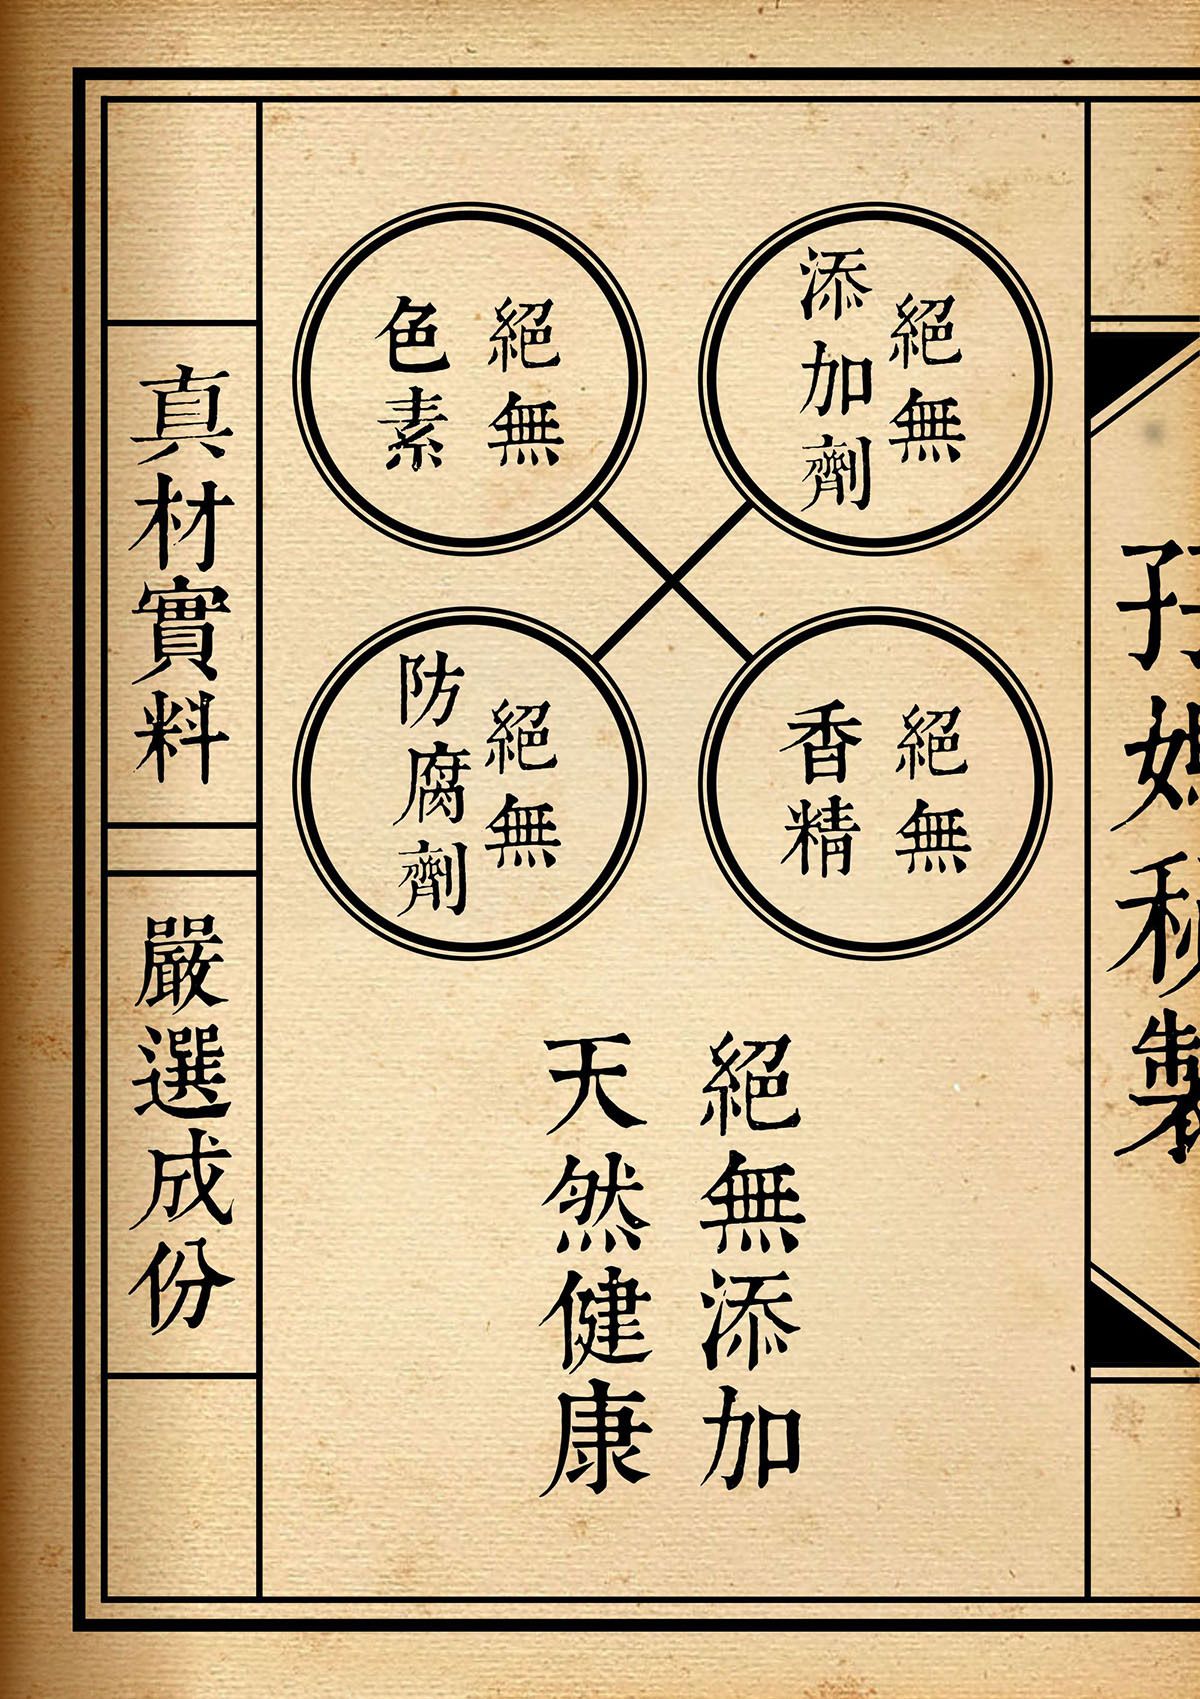 孖媽秘製
絕無
添加劑
絕無
色素
絕無
香精
絕無
防腐劑
絕無添加
天然健康
真材實料
嚴選成份